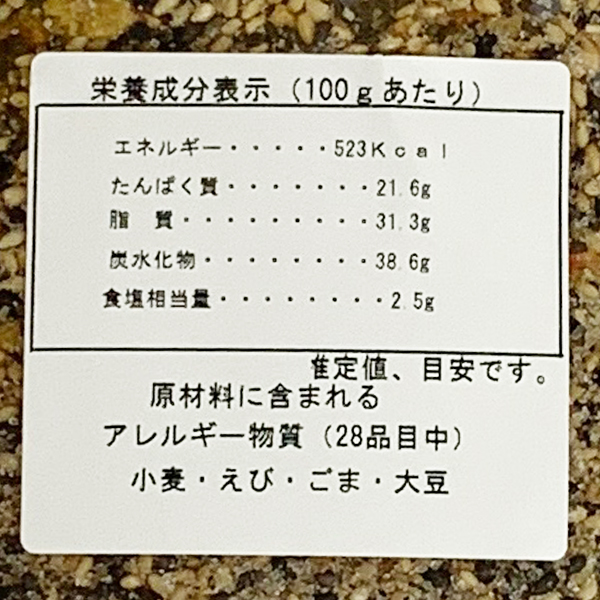 栄養成分表示（100gあたり）
エネルギー・・・・・523Kcal
たんぱく質・・・・・・・21.6g
脂　質・・・・・・・・・31.3g
炭水化物・・・・・・・・38.6g
食塩相当量・・・・・・・・2.5g
推定値、目安です。
原材料に含まれる
アレルギー物質（28品目中）
小麦・えび・ごま・大豆